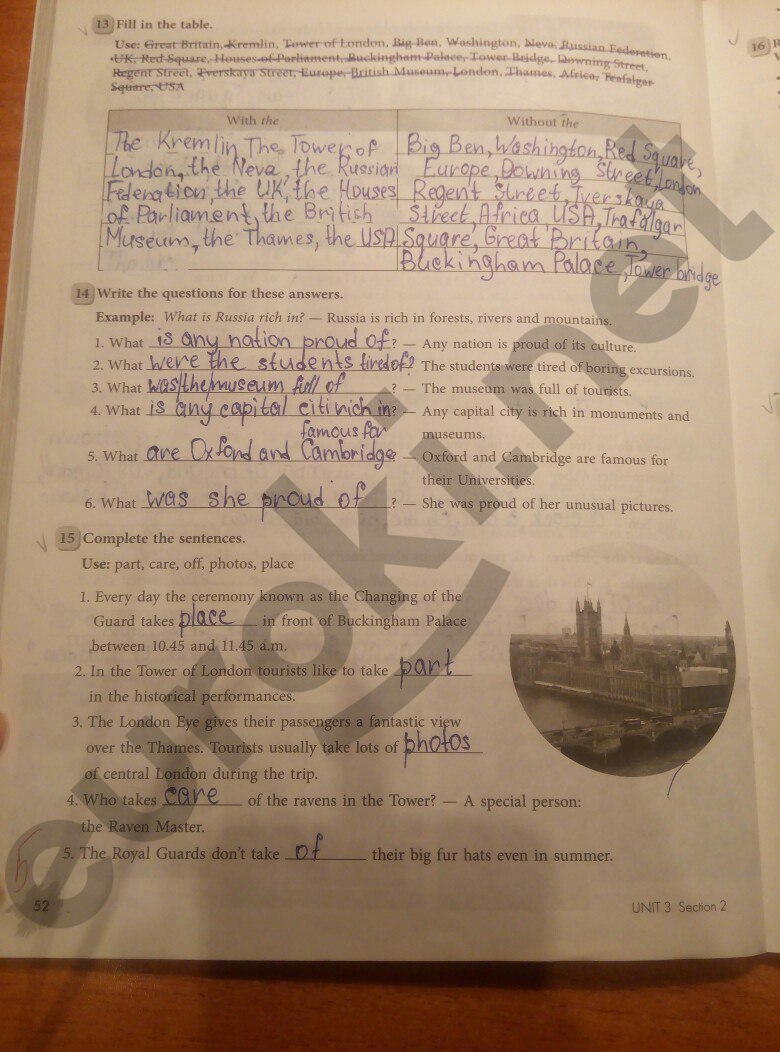 13 Fill in the table.
Use: Great Britain, Kremlin, Tower of London, Big Ben, Washington, Neva, Russian Federation,
UK, Red Square, Houses of Parliament, Buckingham Palace, Tower Bridge, Downing Street,
Regent Street, Tverskaya Street, Europe, British Museum, London, Thames, Africa, Trafalgar
Square, USA
16
With the
Without the
The Kremlin, The Tower of
London, the Neva, the Russian
Federation, the UK, the Houses
of Parliament, the British
Museum, the Thames, the USA
Big Ben, Washington, Red Square,
Europe, Downing Street, London
Regent Street, Tverskaya
Street, Africa USA, Trafalgar
Square, Great Britain,
Buckingham Palace, Tower bridge
14 Write the questions for these answers.
Example: What is Russia rich in? — Russia is rich in forests, rivers and mountains.
1. What is any nation proud of? — Any nation is proud of its culture.
2. What were the students tired of? The students were tired of boring excursions.
3. What was the museum full of ? — The museum was full of tourists.
4. What is any capital citi rich in? — Any capital city is rich in monuments and
museums.
famous for
5. What are Oxford and Cambridge — Oxford and Cambridge are famous for
their Universities.
6. What was she proud of ? — She was proud of her unusual pictures.
15 Complete the sentences.
Use: part, care, off, photos, place
1. Every day the ceremony known as the Changing of the
Guard takes place in front of Buckingham Palace
between 10.45 and 11.45 a.m.
2. In the Tower of London tourists like to take part
in the historical performances.
3. The London Eye gives their passengers a fantastic view
over the Thames. Tourists usually take lots of photos
of central London during the trip.
4. Who takes care of the ravens in the Tower? — A special person:
the Raven Master.
5. The Royal Guards don't take of their big fur hats even in summer.
5
52
UNIT 3 Section 2
euroki.net